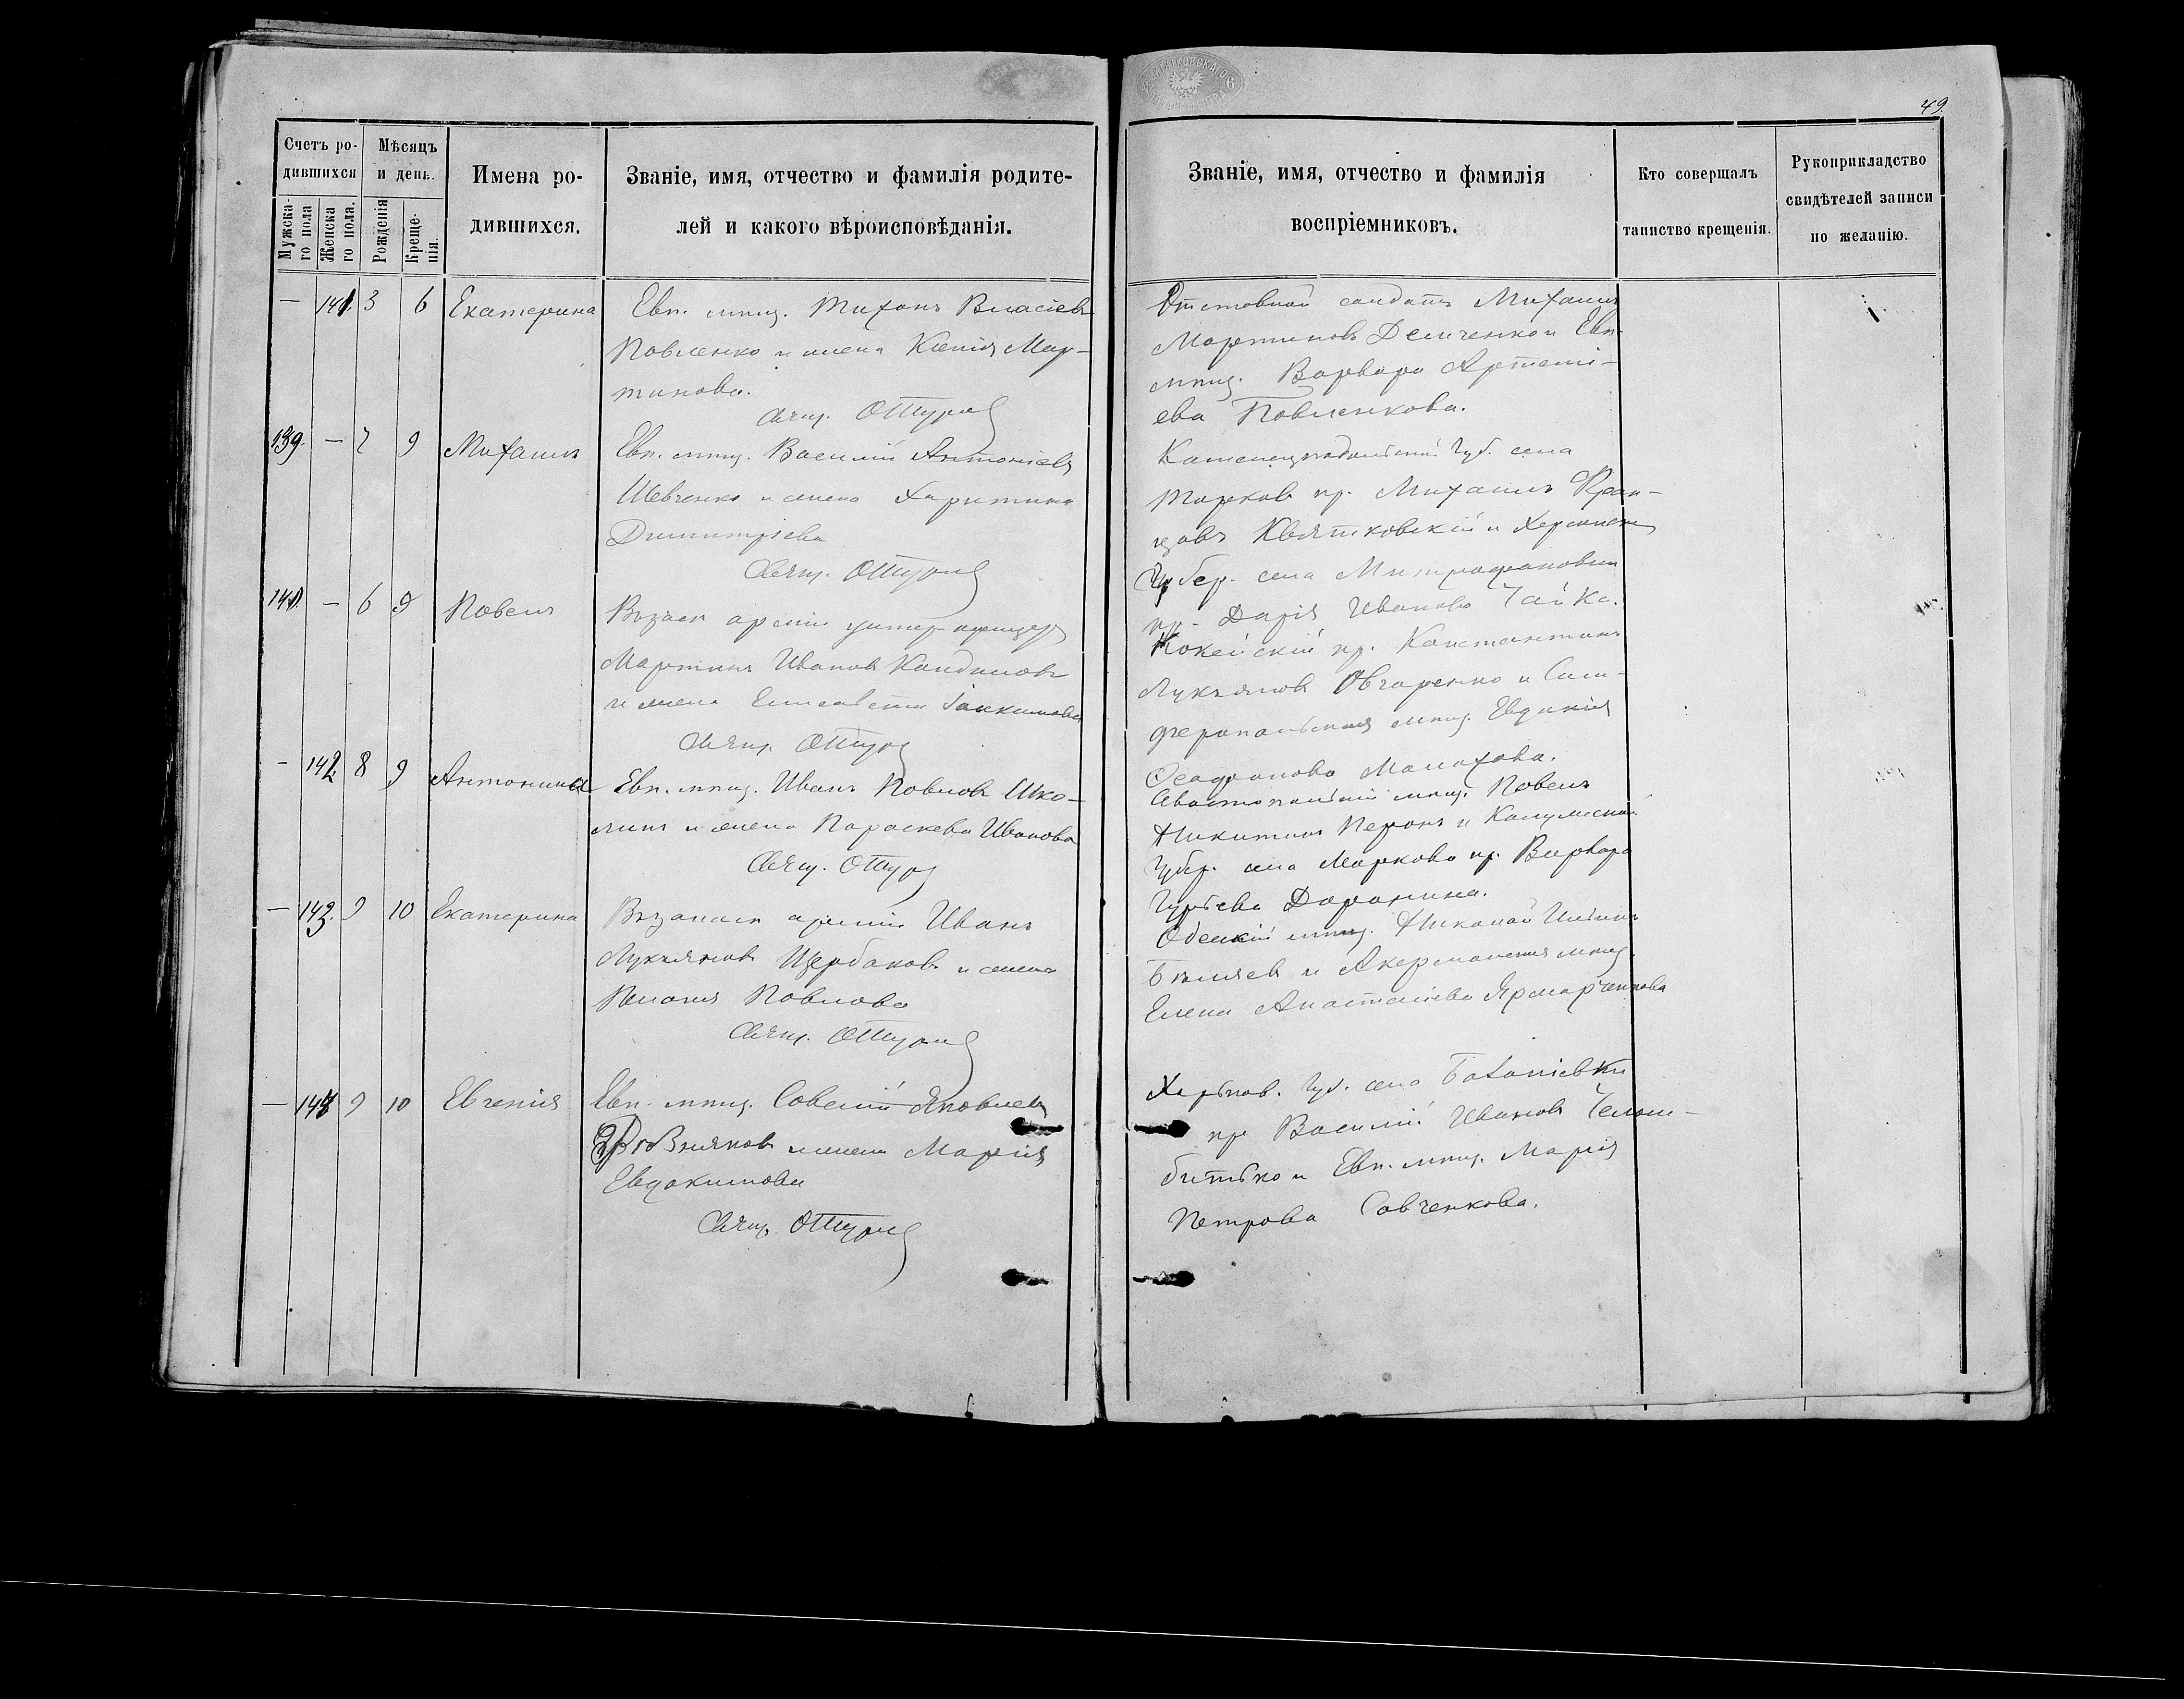 49.
Счетъ ро-
дившихся
Мѣсяцъ
и день.
Мужска-
го пола
Женска
го пола.
Рожденія
Креще-
нія.
Имена ро-
дившихся.
Званіе, имя, отчество и фамилія родите-
лей и какого вѣроисповѣданія.
Званіе, имя, отчество и фамилія
воспріемниковъ.
Кто совершалъ
таинство крещенія.
Рукоприкладство
свидѣтелей записи
по желанію.
— 141. 3 6 Екатерина
Евп. мѣщ. Тихонъ Власіевъ
Павленко и жена Ксенія Мар-
тинова.
Свящ.
Отставной солдатъ Михаилъ
Мартиновъ Демченко и Евп.
мѣщ. Варвара Артемі-
ева Павленкова.
139. — 7 9 Михаилъ
Евп. мѣщ. Василій Антоніевъ
Шевченко и жена Харитина
Димитріева
Свящ.
Каменецподольской Губ. села
кр. Михаилъ Фран-
цовъ Квятковскій и Херсонской
Губер. села Митрофановки
кр. Дарія Иванова Чайка.
140. — 6 9 Павелъ
Въ запасѣ арміи унтер офицеръ
Мартинъ Ивановъ
и жена Елисавета Іоакимова
Свящ.
кр. Константинъ
Лукъяновъ Овчаренко и Сим-
феропольская мѣщ. Евдокія
Малахова.
— 142 8 9 Антонина
Евп. мѣщ. Иванъ Павловъ Шко-
линъ и жена Параскева Иванова
Свящ.
Севастопольскій мѣщ. Павелъ
Никитинъ и Калужской
Губер. села Маркова кр. Варвара
Гурьева Доронина.
— 143. 9 10 Екатерина
Въ запасѣ арміи Иванъ
Лукъяновъ Щербаковъ и жена
Павлова
Свящ.
Одесскій мѣщ. Николай Ильинъ
Бѣляевъ и Акерманская мѣщ.
Елена Анастасіева Ярмарченкова
— 144 9 10 Евгенія
Евп. мѣщ. Савелій Яковлевъ
и жена Марія
Евдокимова
Свящ.
Харьков. Губ. села
кр Василій Ивановъ Челом-
битько и Евп. мѣщ. Марія
Петрова Савченкова.